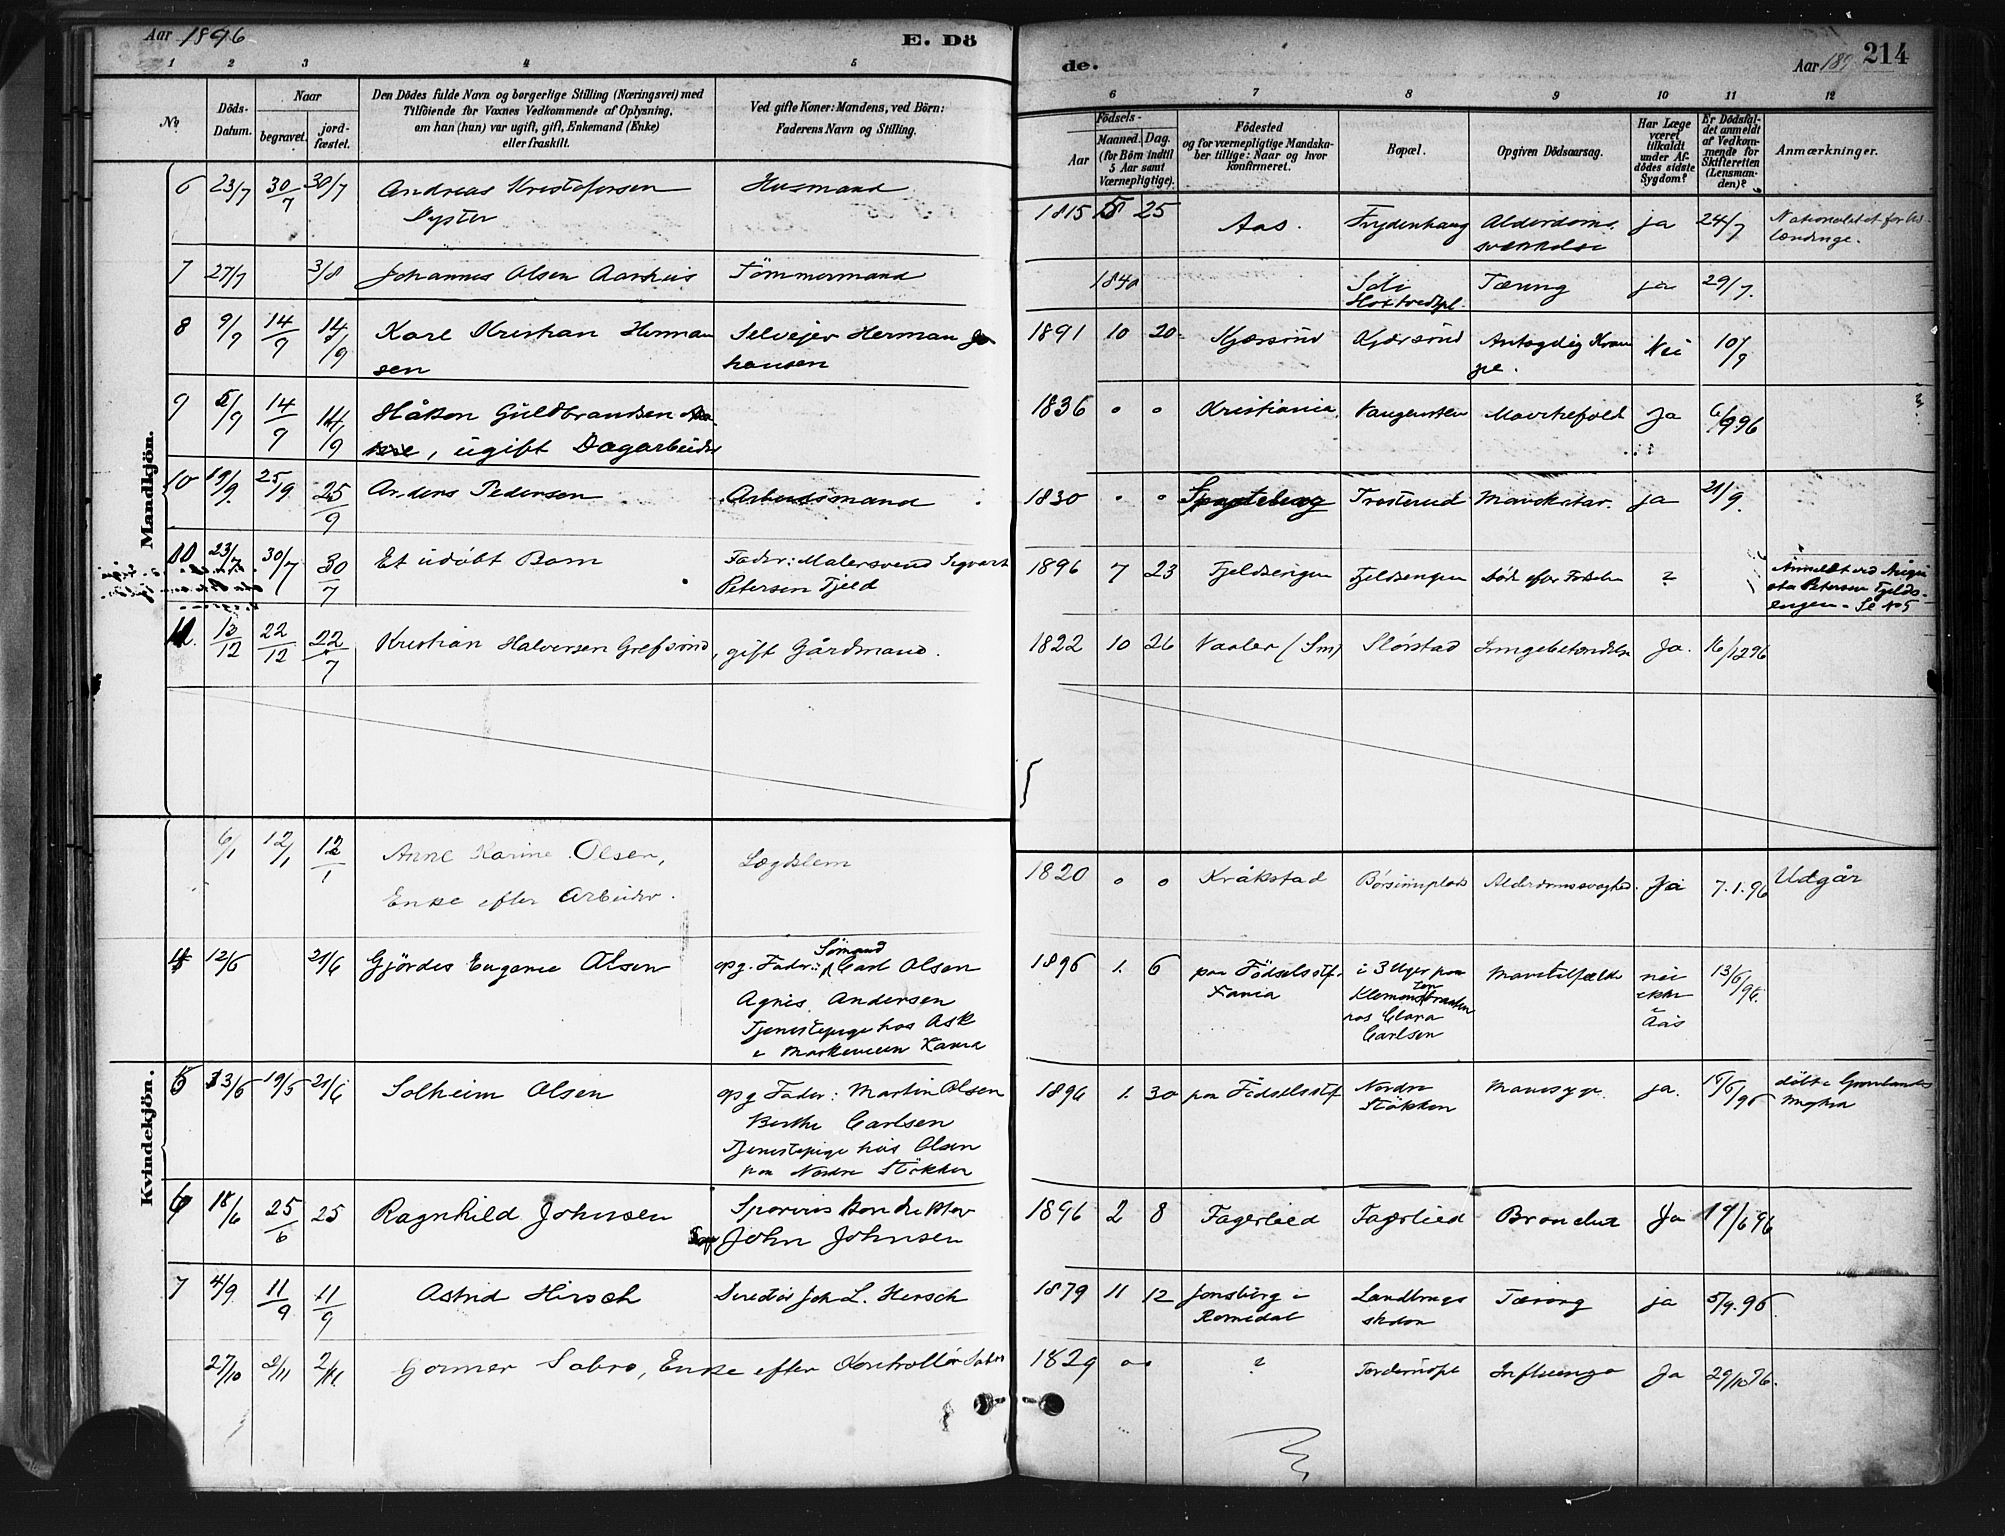 Aar 1896
E. Dö
1 2 3 4 5
No
Döds-Datum.
Naar
begravet.
jord-fæstet.
Den Dödes fulde Navn og borgerlige Stilling (Næringsvei) med
Tilföiende for Voxnes Vedkommende af Oplysning,
om han (hun) var ugift, gift, Enkemand (Enke)
eller fraskilt.
Ved gifte Koner: Mandens, ved Börn:
Faderens Navn og Stilling.
Mandkjön.
6 23/7 30/7 30/7 Andreas Kristofersen Husmand
7 27/7 3/8 Johannes Olsen Aarhus Tömmermand
8 9/9 14/9 14/9 Karl Kristian Herman Selveier Herman Jo
sen hansen
9 5/9 14/9 14/9 Håkon Guldbrandsen
, ugift Dagarbeider
10 19/9 25/9 25/9 Anders Pedersen Arbeidsmand
11 23/7 30/7 30/7 Et udöbt Barn Fader: Malersvend Sigvart
Petersen Fjeld
12. 13/12 22/12 22/7 Kristian Halvorsen Grefsrud, gift Gårdmand.
Kvindekjön.
6/1 12/1 12/1 Anne Karine Olsen, Lægdslem
Enke efter Arbeider.
4 12/6 21/6 Gjördis Eugenie Olsen opg. Fader: Sömand Carl Olsen
Agnes Andersen
Tjenestepige hos Ask
5 13/6 19/5 21/6 Solheim Olsen opg Fader: Martin Olsen
Berthe Carlsen
Tjenestepige hos Olsen
paa Nordre Stökken
6 18/6 25/6 25 Ragnhild Johnsen
John Johnsen
7 4/9 11/9 11/9 Astrid Hirsch Direktör Joh L. Hirsch
27/10 2/11 2/11 Sabro, Enke efter Kontrollör Sabro
de.
Aar 189
214
6 7 8 9 10 11 12
Födsels-
Aar
Maaned. Dag.
(for Börn indtil
5 Aar samt
Værnepligtige).
Födested
og for værnepligtige Mandska-
ber tillige: Naar og hvor
konfirmeret.
Bopæl.
Opgiven Dödsaarsag.
Har Læge
været
tilkaldt
under Af-
dödes sidste
Sygdom?
Er Dödsfal-
det anmeldt
af Vedkom-
mende for
Skifteretten
(Lensman-
den)?
Anmærkninger.
1815 5 25 Aas. Frydenhaug Alderdoms- ja 24/7 Nationalitet for Ud-
svækkelse lændinge.
1840 Tæring ja 29/7.
1891 10 20 Kjærsund Kjærsund Kram Nei 10/9
pe.
1836 0 0 Kristiania. Vaugensten Mavekræft Ja 6/9 96
1830 0 0 Spydeberg Trosterud Mavekatar. ja 21/9.
1896 7 23 Fjeldsengen Fjeldsengen Död efter Födselen ? Anmeldt ved
Petersen Fjelds-
engen.
1822 10 26 Vaaler (Sm) Slörstad Lungebetændelse Ja. 16/12 96
1820 0 0 Kråkstad Börsumplads Alderdomssvaghed. Ja 7.1.96 Udgår
1896 1. 6 paa Födselsstf. i 3 Uger paa Mavetilfælde nei 13/6 96.
Xania Klemons ikke
hos Clara i
Carlsen Aas
1896 1. 30 paa Födselsstf Nordre Mavesyge. ja. 15/6 96 döbt i Grönlands
Stökken
1896 2 8 Fagerlied Fagerlied Bronchit Ja 19/6 96
1879 11 12 Jonsberg i Landbrugs Tæring ja 5/9. 96
Romedal skolen
1829 0 0 ? Influenza Ja 29/10 96.